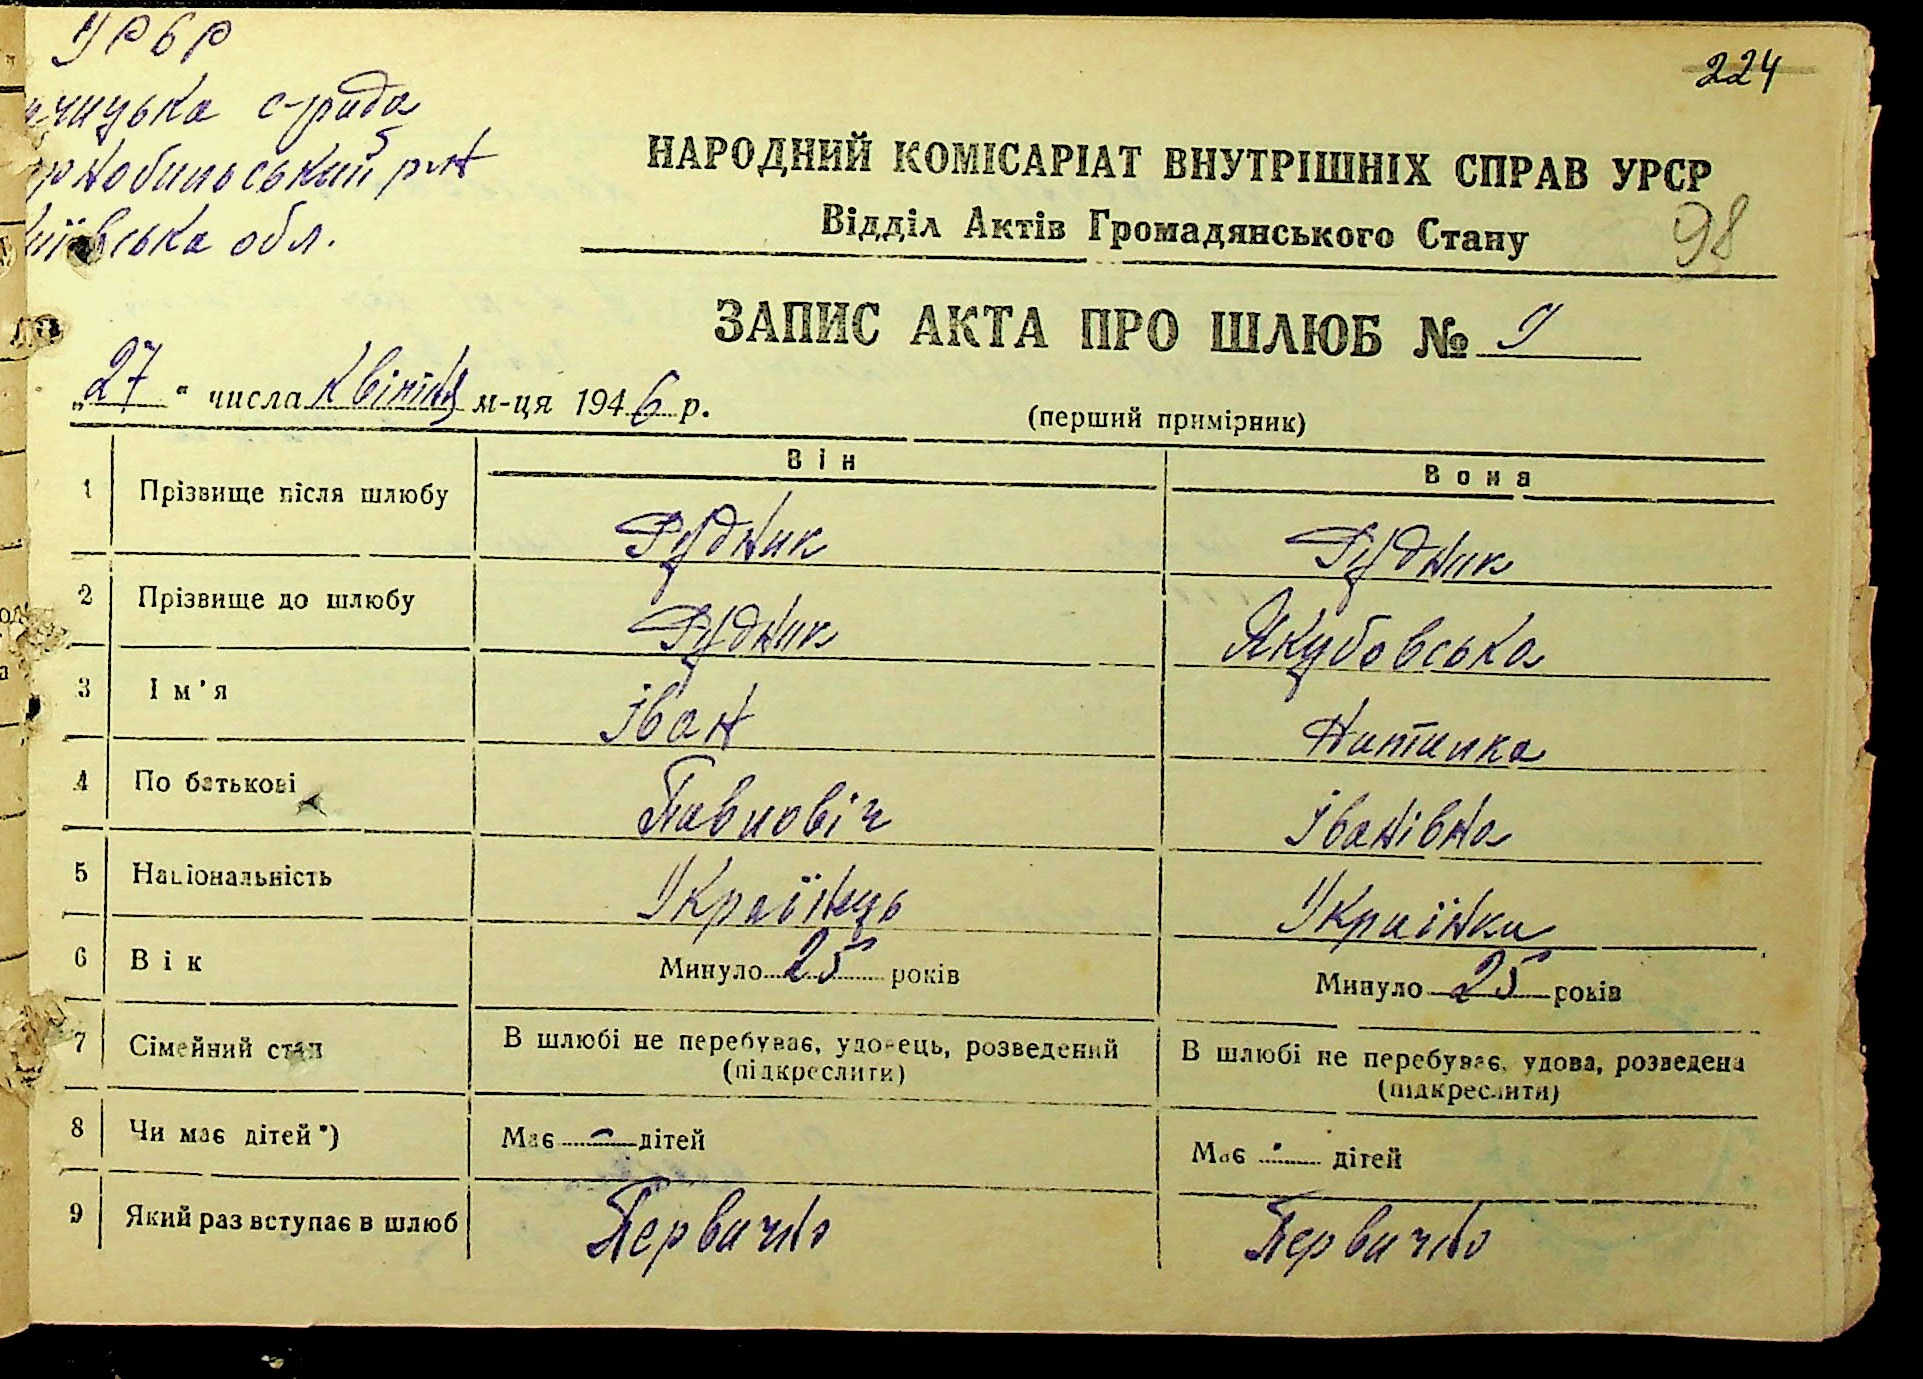 УРСР
224
чицька с-рада
рнобильський р-н
НАРОДНИЙ КОМІСАРІАТ ВНУТРІШНІХ СПРАВ УРСР
Київська обл.
Відділ Актів Громадянського Стану
98
ЗАПИС АКТА ПРО ШЛЮБ №
„27“ числа квітня м-ця 1946 р.
(перший примірник)
Він Вона
1 Прізвище після шлюбу Рудник Рудник
2 Прізвище до шлюбу Рудник Якубовська
3 Ім'я Іван Наталка
4 По батькові Павловіч Іванівна
5 Національність Українець Українка
6 Вік Минуло 25 років Минуло 25 років
7 Сімейний стан В шлюбі не перебуває, удовець, розведений В шлюбі не перебуває, удова, розведена
(підкреслити) (підкреслити)
8 Чи має дітей*) Має - дітей Має - дітей
9 Який раз вступає в шлюб Первично Первично